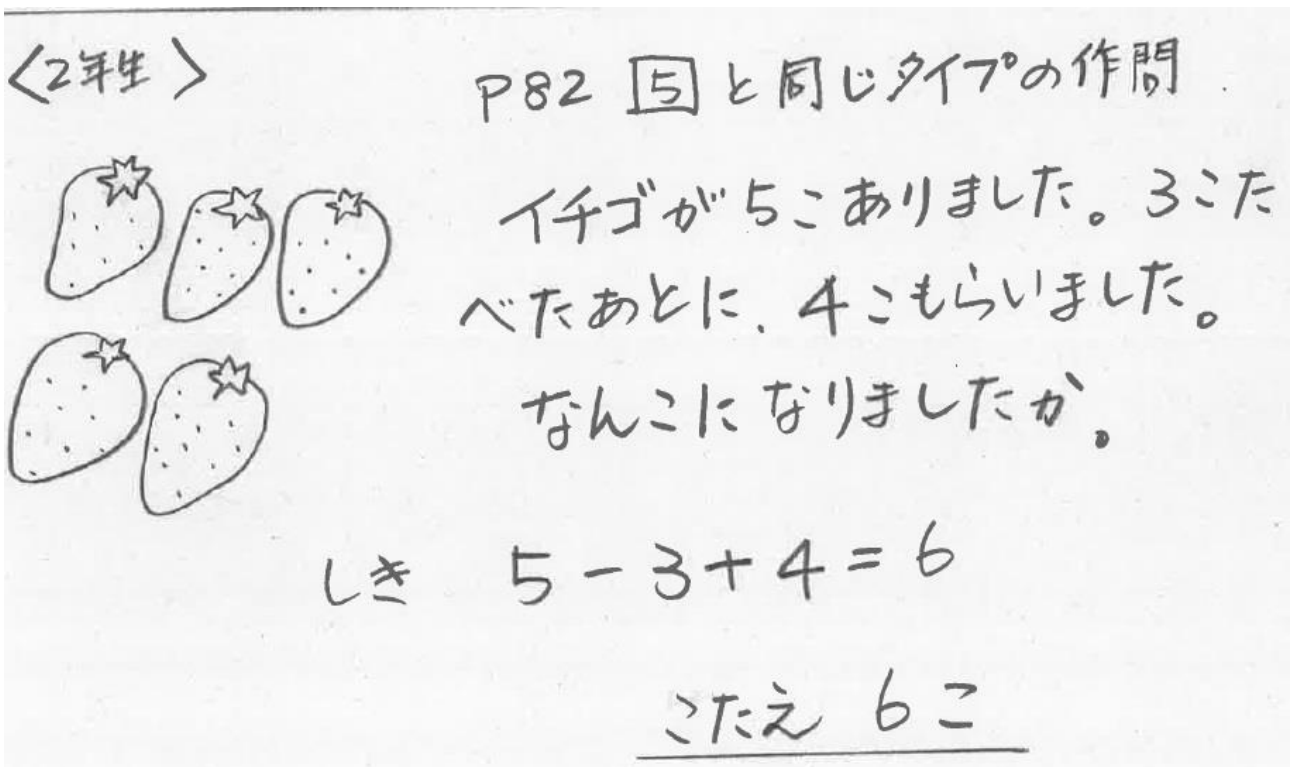 〈2年生〉
P82 5 と同じタイプの作問
イチゴが5こありました。3こた
べたあとに、4こもらいました。
なんこになりましたか。
しき 5-3+4=6
こたえ 6こ